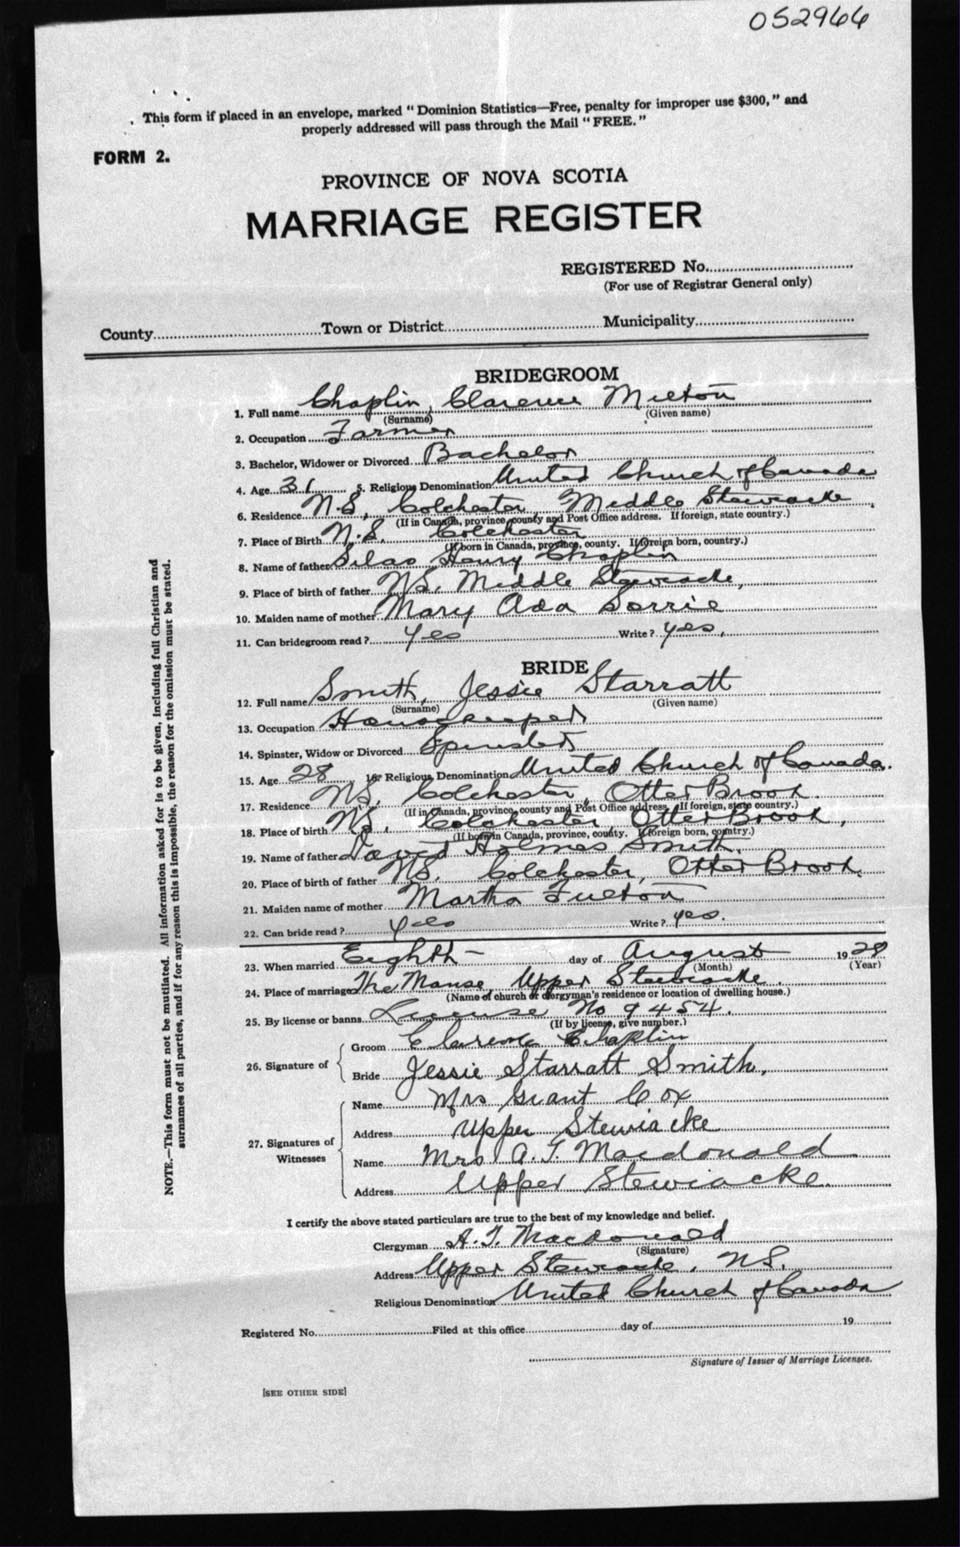 052966
This form if placed in an envelope, marked "Dominion Statistics—Free, penalty for improper use $300," and
properly addressed will pass through the Mail "FREE."
FORM 2.
PROVINCE OF NOVA SCOTIA
MARRIAGE REGISTER
REGISTERED No.
(For use of Registrar General only)
County Town or District Municipality
BRIDEGROOM
1. Full name Chaplin, Clarence Milton
(Surname) (Given name)
2. Occupation Farmer
3. Bachelor, Widower or Divorced Bachelor
4. Age 31 5. Religious Denomination United Church of Canada
6. Residence N.S, Colchester, Middle Stewiacke,
(If in Canada, province, county and Post Office address. If foreign, state country.)
7. Place of Birth N.S. Colchester
(If born in Canada, province, county. If foreign born, country.)
8. Name of father Silas Henry Chaplin
9. Place of birth of father NS. Middle Stewiacke,
10. Maiden name of mother Mary Ada Sorrie
11. Can bridegroom read? Yes Write? Yes,
BRIDE
12. Full name Smith, Jessie Starratt
(Surname) (Given name)
13. Occupation Housekeeper
14. Spinster, Widow or Divorced Spinster
15. Age 28 16. Religious Denomination United Church of Canada.
17. Residence NS, Colchester, Otter Brook.
(If in Canada, province, county and Post Office address. If foreign, state country.)
18. Place of birth NS, Colchester, Otter Brook,
(If born in Canada, province, county. If foreign born, country.)
19. Name of father David Holmes Smith.
20. Place of birth of father NS. Colchester, Otter Brook.
21. Maiden name of mother Martha Fulton
22. Can bride read? Yes Write? yes.
23. When married Eighth day of August 1928
(Month) (Year)
24. Place of marriage The Manse, Upper Stewiacke.
(Name of church or clergyman's residence or location of dwelling house.)
25. By license or banns License No 9454.
(If by license, give number.)
26. Signature of
Groom Clarence Chaplin
Bride Jessie Starratt Smith,
27. Signatures of
Witnesses
Name Mrs Grant Cox
Address Upper Stewiacke
Name Mrs A. T. Macdonald
Address Upper Stewiacke.
I certify the above stated particulars are true to the best of my knowledge and belief.
Clergyman A. T. Macdonald
(Signature)
Address Upper Stewiacke, NS.
Religious Denomination United Church of Canada
Registered No. Filed at this office day of 19
Signature of Issuer of Marriage Licenses.
[SEE OTHER SIDE]
NOTE.—This form must not be mutilated. All information asked for is to be given, including full Christian and
surnames of all parties, and if for any reason this is impossible, the reason for the omission must be stated.